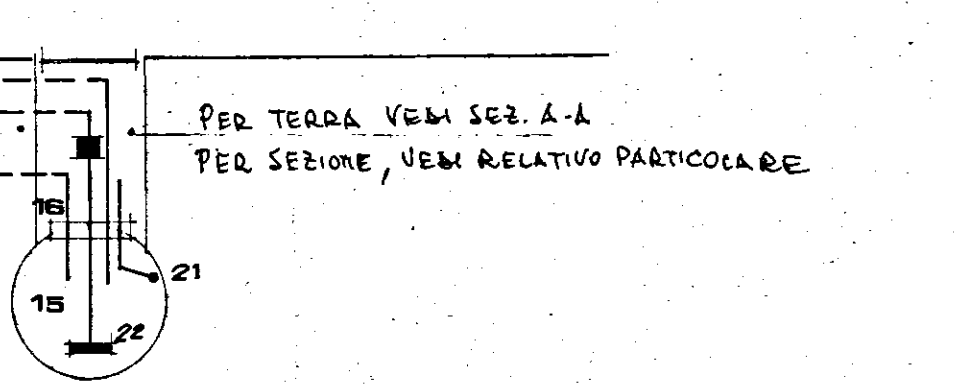 PER TERRA VEDI SEZ. A-A
PER SEZIONE, VEDI RELATIVO PARTICOLARE
16
21
15
22